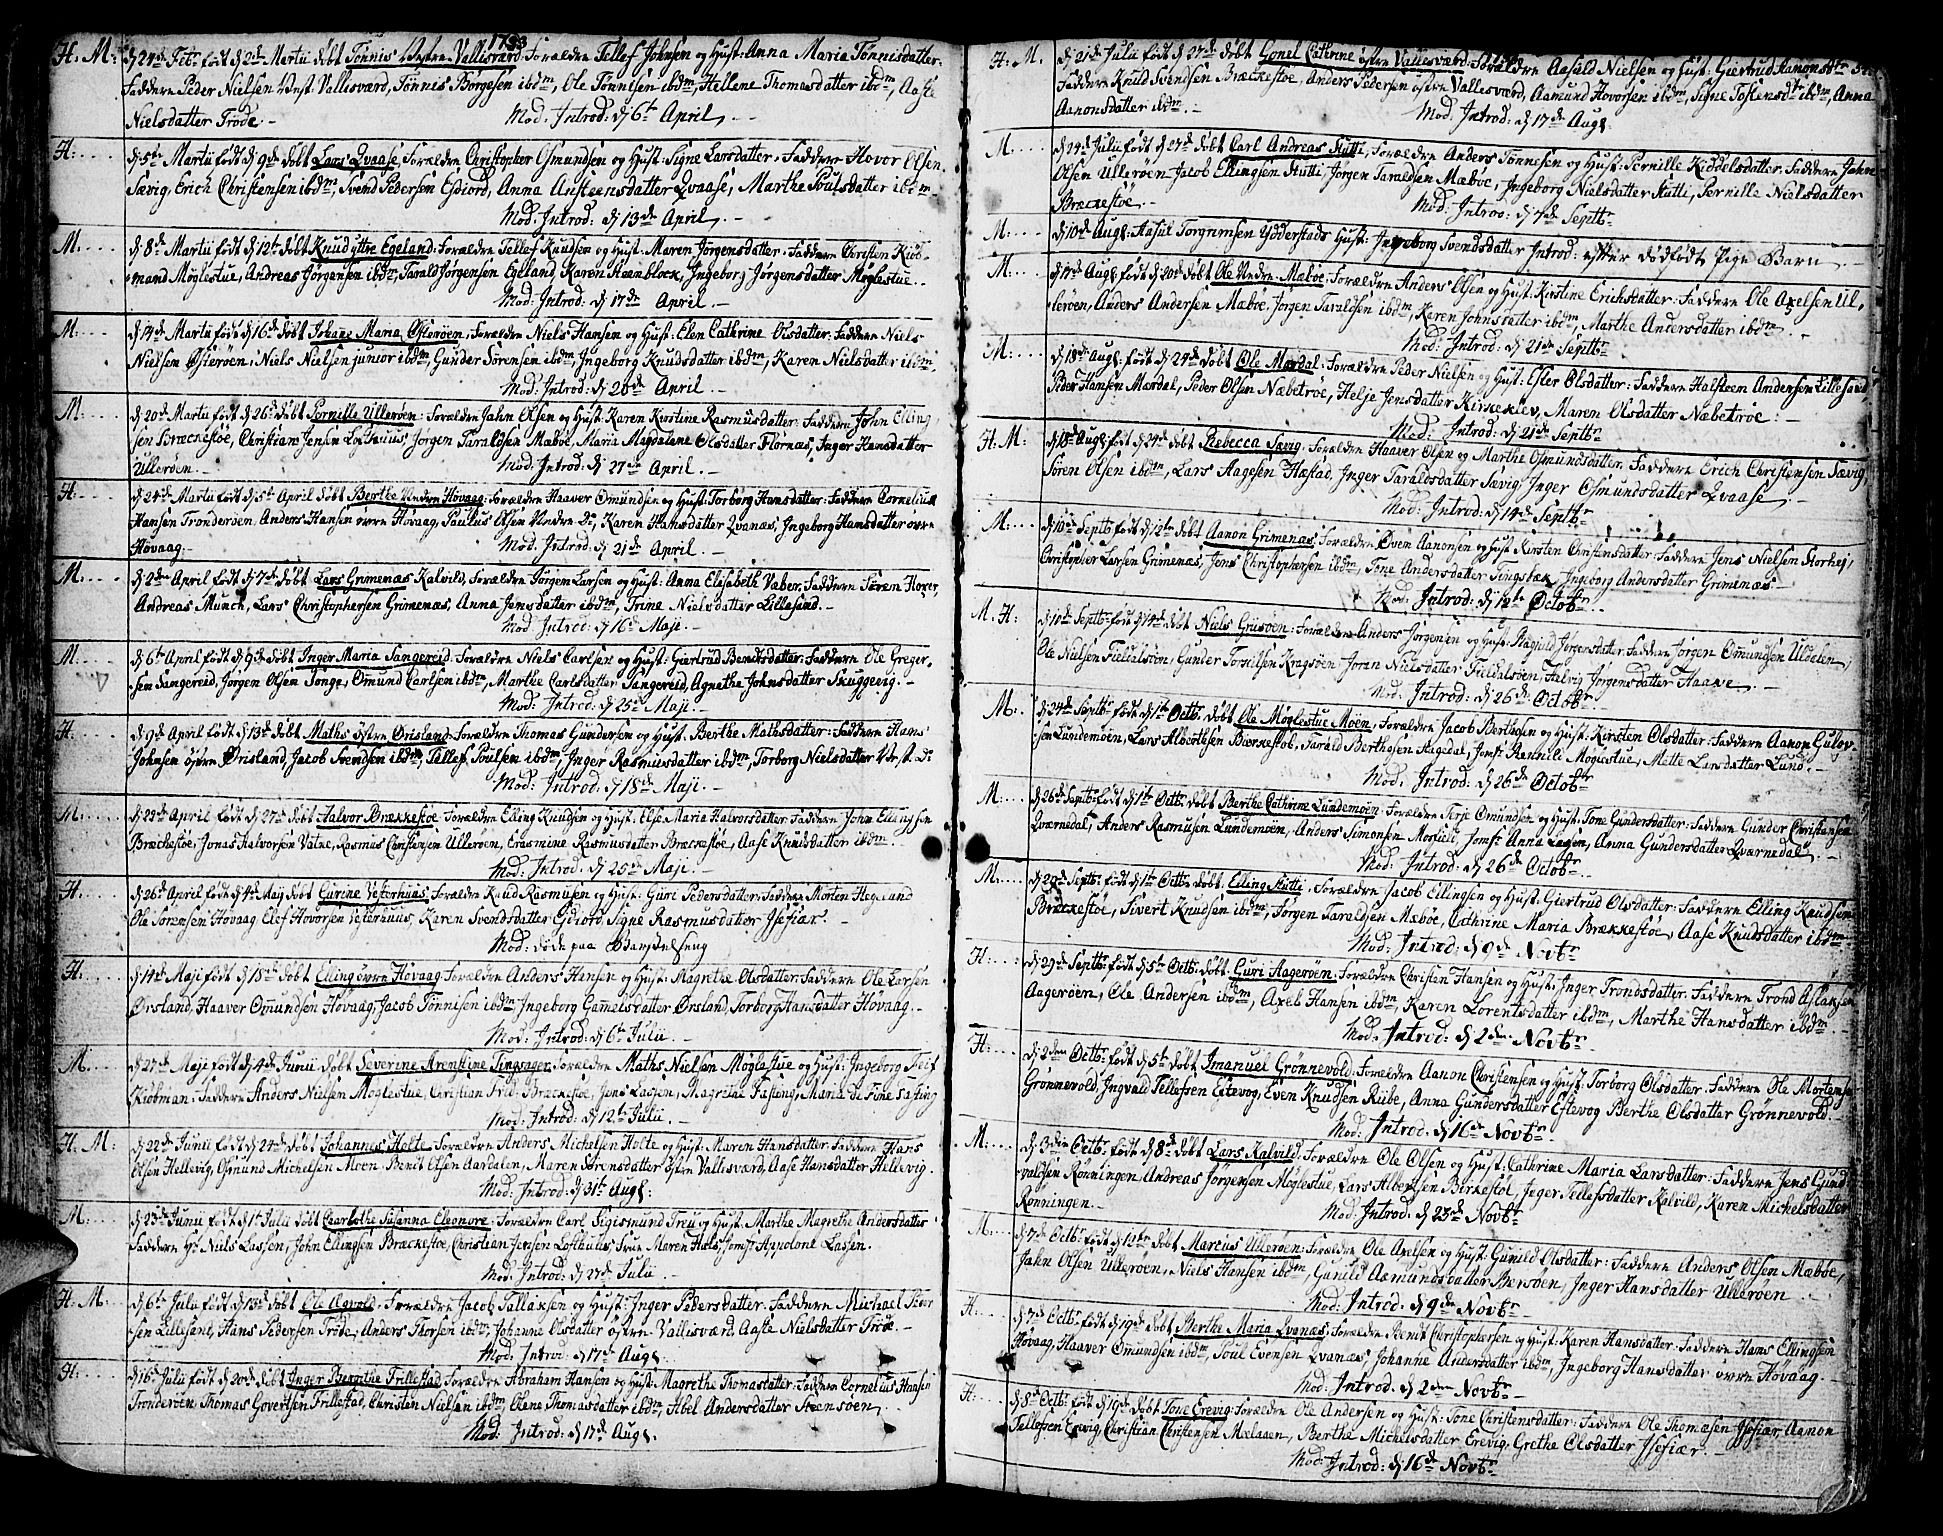 1793
H. M: d 24de Febr: født d 2de Martii døbt Tønnis Vestre Vallesværd. Forældre Tellef Johnsen og Hust: Anna Maria Tønnisdatter.
Faddere Peder Nielsen Vest. Vallesværd, Tönnis Börgesen ibdm, Ole Tönnesen ibdm, Hellene Thomasdatter ibdm, Aasle
Nielsdatter Trøde. Mod. Introd: d 6te April.
H. d 5te Martii født d 9de døbt Lars Qvaase, Forældre Christopher Osmundsen og Hust: Signe Larsdatter. Faddere Hovor Olsen
Sævig, Erich Christensen ibdm, Svend Pedersen Esdiord, Anna Austeensdatter Qvaase, Marthe Poulsdatter ibdm
Mod. Introd: d 13de April.
M. d 8de Martii født d 12te døbt Knud yttre Egeland: Forældre Tellef Knudsen og Hust: Maren Jørgensdatter: Faddere Christen Kiöb-
mand Möglestue, Andreas Jörgensen ibdm, Tarald Jörgensen Egeland, Karen Haanblock, Ingeborg Jörgensdatter Möglestue.
Mod: Introd: d 17de April
M. d 14de Martii født d 16de døbt Johane Maria Østerøen: Forældre Niels Hansen og Hust: Elen Cathrine Olsdatter: Faddere Niels
Nielsen Østerøen, Niels Nielsen junior ibdm, Gunder Sörensen ibdm, Ingeborg Knudsdatter ibdm, Karen Nielsdatter ibdm.
Mod: Introd: d 20de April.
M. d 20de Martii født d 26de døbt Pernille Ulleröen: Forældre Jahn Olsen og Hust: Karen Kirstine Rasmusdatter: Faddere John Elling-
sen Bræckestöe, Christian Jensen Lofthuus, Jörgen Taraldsen Mæböe, Maria Magdalene Olsdatter Flornæs, Inger Hansdatter
Ulleröen. Mod. Introd: d 27de April.
H. d 24de Martii født d 5te April døbt Berthe Nedre Hövaag: Forældre Haaver Omundsen og Hust: Torborg Hansdatter: Faddere Cornelius
Hansen Tronderöen, Anders Hansen övre Hövaag, Paulus Olsen Nedre Do, Karen Hansdatter Qvanæs, Ingeborg Hansdatter övre
Hövaag. Mod: Introd: d 21de April.
M. d 2den April født d 7de døbt Lars Grimenæs Kalvild, Forældre Jörgen Larsen og Hust: Anna Elisabeth Vabor. Faddere Sören Hoxer,
Andreas Munch, Lars Christophersen Grimenæs, Anna Jensdatter ibdm, Trine Nielsdatter Lillesand.
Mod: Introd: d 16de Maji.
M. d 6te April født d 9de døbt Inger Maria Tangereid. Forældre Niels Carlsen og Hust: Giertrud Bendtsdatter. Faddere Ole Greger-
sen Tangereid, Jörgen Olsen Songe, Omund Carlsen ibdm, Marthe Carlsdatter Tangereid, Agnethe Johnsdatter Skuggevig.
Mod: Introd: d 25de Maji.
H. d 9de April født d 13de døbt Maths östre Ørisland. Forældre Thomas Gundersen og Hust: Berthe Mathsdatter: Faddere Hans
Johnsen östre Ørisland, Jacob Svendsen ibdm, Tellef Poulsen ibdm, Inger Rasmusdatter ibdm, Torborg Nielsdatter Vest. Do
Mod: Introd: d 18de Maji.
M. d 23de April født d 27de døbt Halvor Brækkestöe: Forældre Elling Knudsen og Hust: Else Maria Halvorsdatter: Faddere John Ellingsen
Bræckestöe, Jonas Halvorsen Vatne, Rasmus Christensen Ulleröen, Erasmine Rasmusdatter Bræckestöe, Aase Knudsdatter ibdm.
Mod: Introd: d 25de Maji.
H. d 26de April født d 4de Maij døbt Gurine Vesterhuus, Forældre Knud Rasmusen og Hust: Guri Pedersdatter: Faddere Morten Hegeland
Ole Sörensen Hövaag, Elef Hovorsen Vesterhuus, Karen Svendsdatter Gidiord, Signe Rasmusdatter Isefiær.
Mod: döde paa Barselseng
H. d 14de Maji født d 18de døbt Elling övre Hövaag: Forældre Anders Hansen og Hust: Magrethe Olsdatter: Faddere Ole Larsen
Ørsland, Haaver Omundsen Hövaag, Jacob Tönnisen ibdm, Ingeborg Gamelsdatter Ørsland, Torborg Hansdatter Hövaag.
Mod: Introd: d 6te Julii.
M. d 27de Maji født d 4de Junii døbt Severine Arenstine Tingsager: Forældre Maths Nielsen Möglestue og Hust: Ingeborg Leif
Kiöbman: Faddere Anders Nielsen Möglestue, Christian Friis Bræckestöe, Jens Lassen, Magretha Fasting, Maria de Fine Fasting
Mod: Introd: d 12te Julii.
H. M: d 22de Junii født d 24de døbt Johannes Holte. Forældre Anders Michelsen Holte og Hust: Maren Hansdatter: Faddere Hans
Olsen Hellevig, Osmund Michelsen Moen, Bendt Olsen Aardalen, Maren Sörensdatter östre Vallesværd, Aase Hansdatter Hellevig.
Mod: Introd: d 31te Aug:
M. d 23de Junii født d 1te Julii døbt Charlothe Susanna Eleonore: Forældre Carl Sigismund Treu og Hust: Marthe Magrethe Andersdatter
Faddere Hr Niels Lassen, John Ellingsen Bræckestöe, Christian Jensen Lofthuus, Frue Maren Hals, Jomfr Appolone Lassen.
Mod: Introd: d 27de Julii.
H. M. d 6te Julii født d 13de døbt Ole Agvold: Forældre Jacob Tallaksen og Hust: Inger Pedersdatter: Faddere Michael Peder-
sen Lillesand, Hans Pedersen Tröde, Anders Thorsen ibdm, Johanne Olsdatter östre Vallisværd, Aaste Nielsdatter Tröe.
Mod: Introd: d 17de Aug:
H. d 16de Julii født d 20de døbt Inger Bergithe Frillestad. Forældre Abraham Hansen og Hust: Magrethe Thomasdatter: Faddere Cornelius Hansen
Tronderöen, Thomas Govertsen Frillestad, Christen Nielsen ibdm, Olene Thomasdatter ibdm, Abel Andersdatter Steensöen.
Mod: Introd: d 17de Aug:
H. M. d 21de Julii født d 27de døbt Gonel Cathrine östre Vallesværd. Forældre Aasuld Nielsen og Hust: Giertrud Aanonsdtr
Faddere Knud Svendsen Bræckestöe, Anders Pedersen östre Vallesværd, Aamund Hovorsen ibdm, Signe Torkensdtr ibdm, Anna
Aanonsdatter ibdm. Mod: Introd: d 17de Aug:
M. d 24de Julii født d 27de døbt Carl Andreas Stutti, Forældre Anders Tönnesen og Hust: Pernille Kiddelsdatter: Faddere Jahn
Olsen Ulleröen, Jacob Ellingsen Stutti, Jörgen Taraldsen Mæböe, Ingeborg Nielsdatter Stutti, Pernille Nielsdatter
Bræckestöe. Mod: Introd: d 7de Septbr
M: d 10de Aug: Aasul Torgrimsen Ydderstads Hust: Ingeborg Svendsdatter Introd: efter dödfödt Pige Barn
M: d 14de Aug: født d 20de døbt Ole Nedre Mæböe. Forældre Anders Olsen og Hust: Kirstine Erichsdatter: Faddere Ole Axelsen Ul-
leröen, Anders Andersen Mæböe, Jörgen Taraldsen ibdm, Karen Johnsdatter ibdm, Marthe Andersdatter ibdm
Mod: Introd: d 21de Septbr
M: d 18de Aug: født d 24de døbt Ole Mørdal. Forældre Peder Nielsen og Hust: Ester Olsdatter: Faddere Halsteen Andersen Lillesand,
Peder Hansen Mørdal, Peder Olsen Næbetröe, Helje Jensdatter Kirkeklev, Maren Olsdatter Næbetröe.
Mod: Introd: d 21de Septbr
H. M: d 18de Aug: født d 24de døbt Rebecca Sævig. Forældre Haaver Olsen og Marthe Osmundsdatter. Faddere Erich Christensen Sævig,
Sören Olsen ibdm, Lars Aagesen Hæstad, Inger Taraldsdatter Sævig, Inger Osmundsdatter Qvaase.
Mod: Introd: d 14de Septbr
M. d 10de Septb: født d 12te døbt Aanon Grimenæs: Forældre Even Aanonsen og Hust: Kirsten Christensdatter Faddere Jens Nielsen Storhej,
Christopher Larsen Grimenæs, Jens Christophersen ibdm, Tone Andersdatter Tingsbæk, Ingeborg Andersdatter Grimenæs.
Mod: Introd: d 12te Octobr.
M. H: d 10de Septb: født d 14de døbt Niels Grusöen: Forældre Anders Jörgensen og Hust: Aaguld Jörgensdatter: Faddere Jörgen Omundsen Ulöelen,
Ole Nielsen Fieldalsöen, Gunder Torsilsen Kragsöen, Joran Nielsdatter Fieldalsöen, Helvig Jörgensdatter Haave.
Mod: Introd: d 26de Octobr.
M. d 24de Septb: født d 1te Octb: døbt Ole Möglestue Moen, Forældre Jacob Berthesen og Hust: Kirsten Olsdatter: Faddere Aanon Gulov-
sen Lundemoen, Lars Albertsen Bærkestöe, Tarald Berthesen Aagedal, Jomfr Pernille Möglestue, Mette Larsdatter Lund.
Mod: Introd: d 26de Octobr
M: d 26de Septb: født d 1te Octb: døbt Berthe Cathrine Lundemoen: Forældre Terje Omundsen og Hust: Tone Gundersdatter: Faddere Gunder Christensen
Qværnedal, Anders Rasmusen Lundemoen, Anders Simonsen Moskiel, Jomfr Anna Lagen, Anna Gundersdatter Qværnedal.
Mod: Introd: d 26de Octobr.
M. d 29de Septb: født d 1te Octb: døbt Elling Stutti. Forældre Jacob Ellingsen og Hust: Giertrud Olsdatter: Faddere Elling Knudsen
Bræckestöe, Sivert Knudsen ibdm, Jörgen Taraldsen Mæböe, Cathrine Maria Brækkestöe, Aase Knudsdatter ibdm
Mod: Introd: d 9de Novbr
H. d 29de Septb: født d 5te Octb: døbt Guri Aageröen, Forældre Christen Hansen og Hust: Inger Trondsdatter: Faddere Trond Aslaksen
Aageröen, Ole Andersen ibdm, Axel Hansen ibdm, Karen Lorentsdatter ibdm, Marthe Hansdatter ibdm.
Mod: Introd: d 2den Novbr
H: d 2den Octb: født d 5te døbt Imanuel Grönnevold: Forældre Aanon Christensen og Hust: Torborg Olsdatter: Faddere Ole Mortensen
Grönnevold, Ingvald Tellefsen Estevog, Even Knudsen Ribe, Anna Gundersdatter Estevog, Berthe Olsdatter Grönnevold.
Mod: Introd: d 16de Novbr.
M: d 3die Octb: født d 8de døbt Lars Kalvild, Forældre Ole Olsen og Hust: Cathrine Maria Larsdatter: Faddere Jens Gund-
valdsen Rönningen, Andreas Jörgensen Möglestue, Lars Albertsen Birkestöl, Inger Tellefsdatter Kalvild, Karen Michelsdatter
Rönningen. Mod: Introd: d 23de Novbr
M. d 7de Octb: født d 12te døbt Marcus Ulleröen: Forældre Ole Axelsen og Hust: Gunild Olsdatter: Faddere Anders Olsen Mæböe,
Jahn Olsen Ulleröen, Niels Hansen ibdm, Gunild Asmundsdatter Bersöen, Inger Hansdatter Ulleröen
Mod: Introd: d 9de Novbr
H. d 7de Octb: født d 19de døbt Berthe Maria Qvanæs. Forældre Bendt Christophersen og Hust: Karen Hansdatter: Faddere Hans Ellingsen
Hövaag, Haaver Omundsen ibdm, Poul Evensen Qvanæs, Johanne Andersdatter ibdm, Ingeborg Hansdatter övre Hövaag.
Mod: Introd: d 2den Novbr
H. d 8de Octb: født d 19de døbt Tone Erevig: Forældre Ole Andersen og Hust: Tone Christensdatter: Faddere Ole Thomæsen Isefiær, Aanon
Tellefsen Erevig, Christian Christensen Mælagen, Berthe Michelsdatter Erevig, Grethe Olsdatter Isefiær.
Mod: Introd: d 16de Novbr